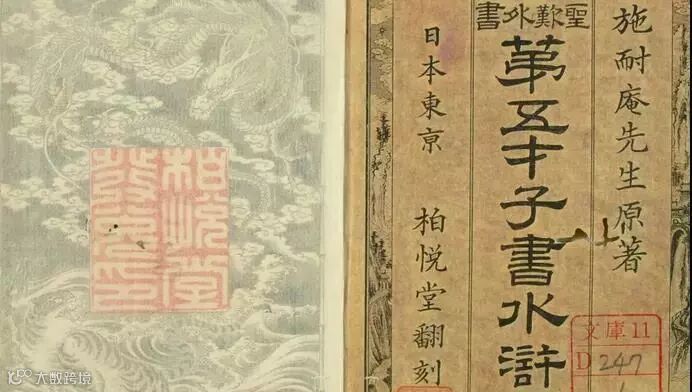 聖歎外書
施耐庵先生原著
第五才子書水滸
日本東亰 柏悅堂翻刻
柏悅堂
文庫11
D 247
大数跨境